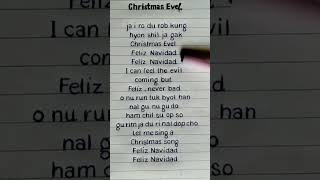 Christmas Evel
ja i ro du rob kung
hyon shil ja gak
Christmas Evel
Feliz Navidad
Feliz Navidad
I can feel the evil
coming but
Feliz, never bad
o nu run tuk byol han
nal gu nu gu do
ham chil su op so
gu rim ja du ri nal dop cho
Let me sing a
Christmas song
Feliz Navidad
Feliz Navidad